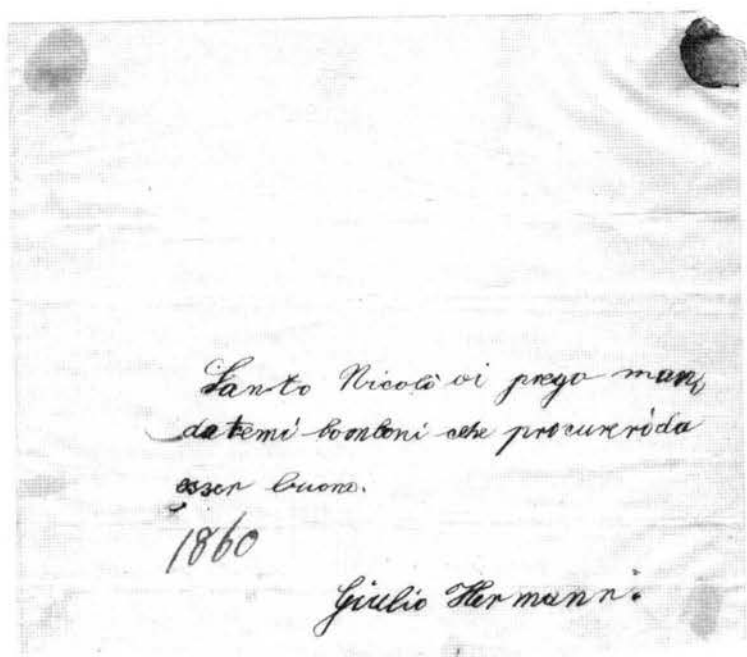 Santo Nicolò vi prego man,
datemi bomboni che procureròda
esser buono.
1860
Giulio Hermann.